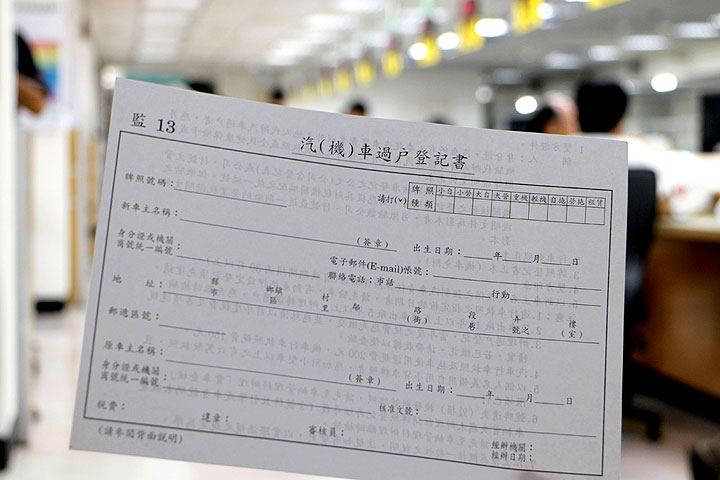 監 13
汽(機)車過戶登記書
牌照號碼：
請打(v)
牌照種類 小自 小營 大自 大營 重機 輕機 自拖 營拖 租賃
新車主名稱：
(簽章)
出生日期： 年 月 日
身分證或機關
商號統一編號
電子郵件(E-mail)帳號：
聯絡電話：市話 行動
地址： 縣市 鄉鎮區 村里 鄰 路(街) 段巷 弄號之 樓(室)
郵遞區號：
原車主名稱：
(簽章)
出生日期： 年 月 日
身分證或機關
商號統一編號
稅費： 違章： 審核員： 核准文號：
經辦機關：
經辦日期：
(請參閱背面說明)